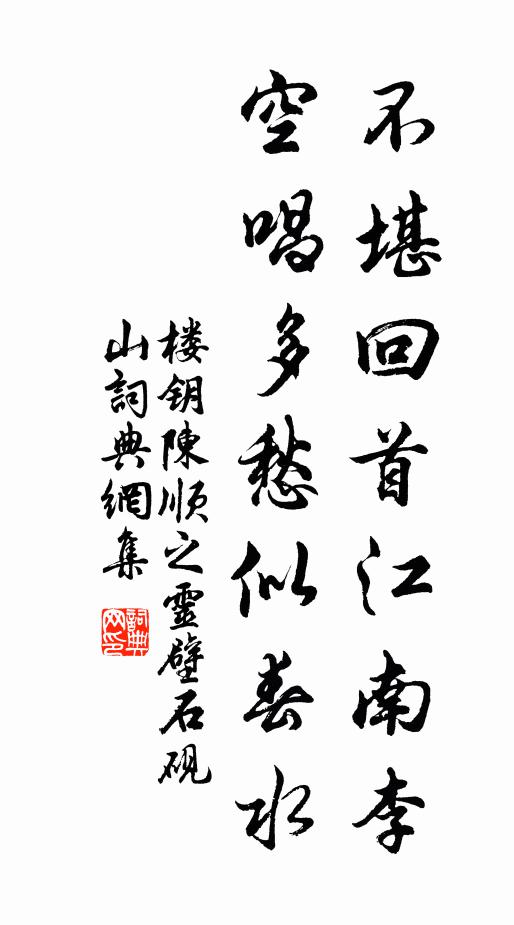 不堪回首江南李
空唱多愁似春水
楼钥陳順之靈壁石硯
山詞典網集
詞典